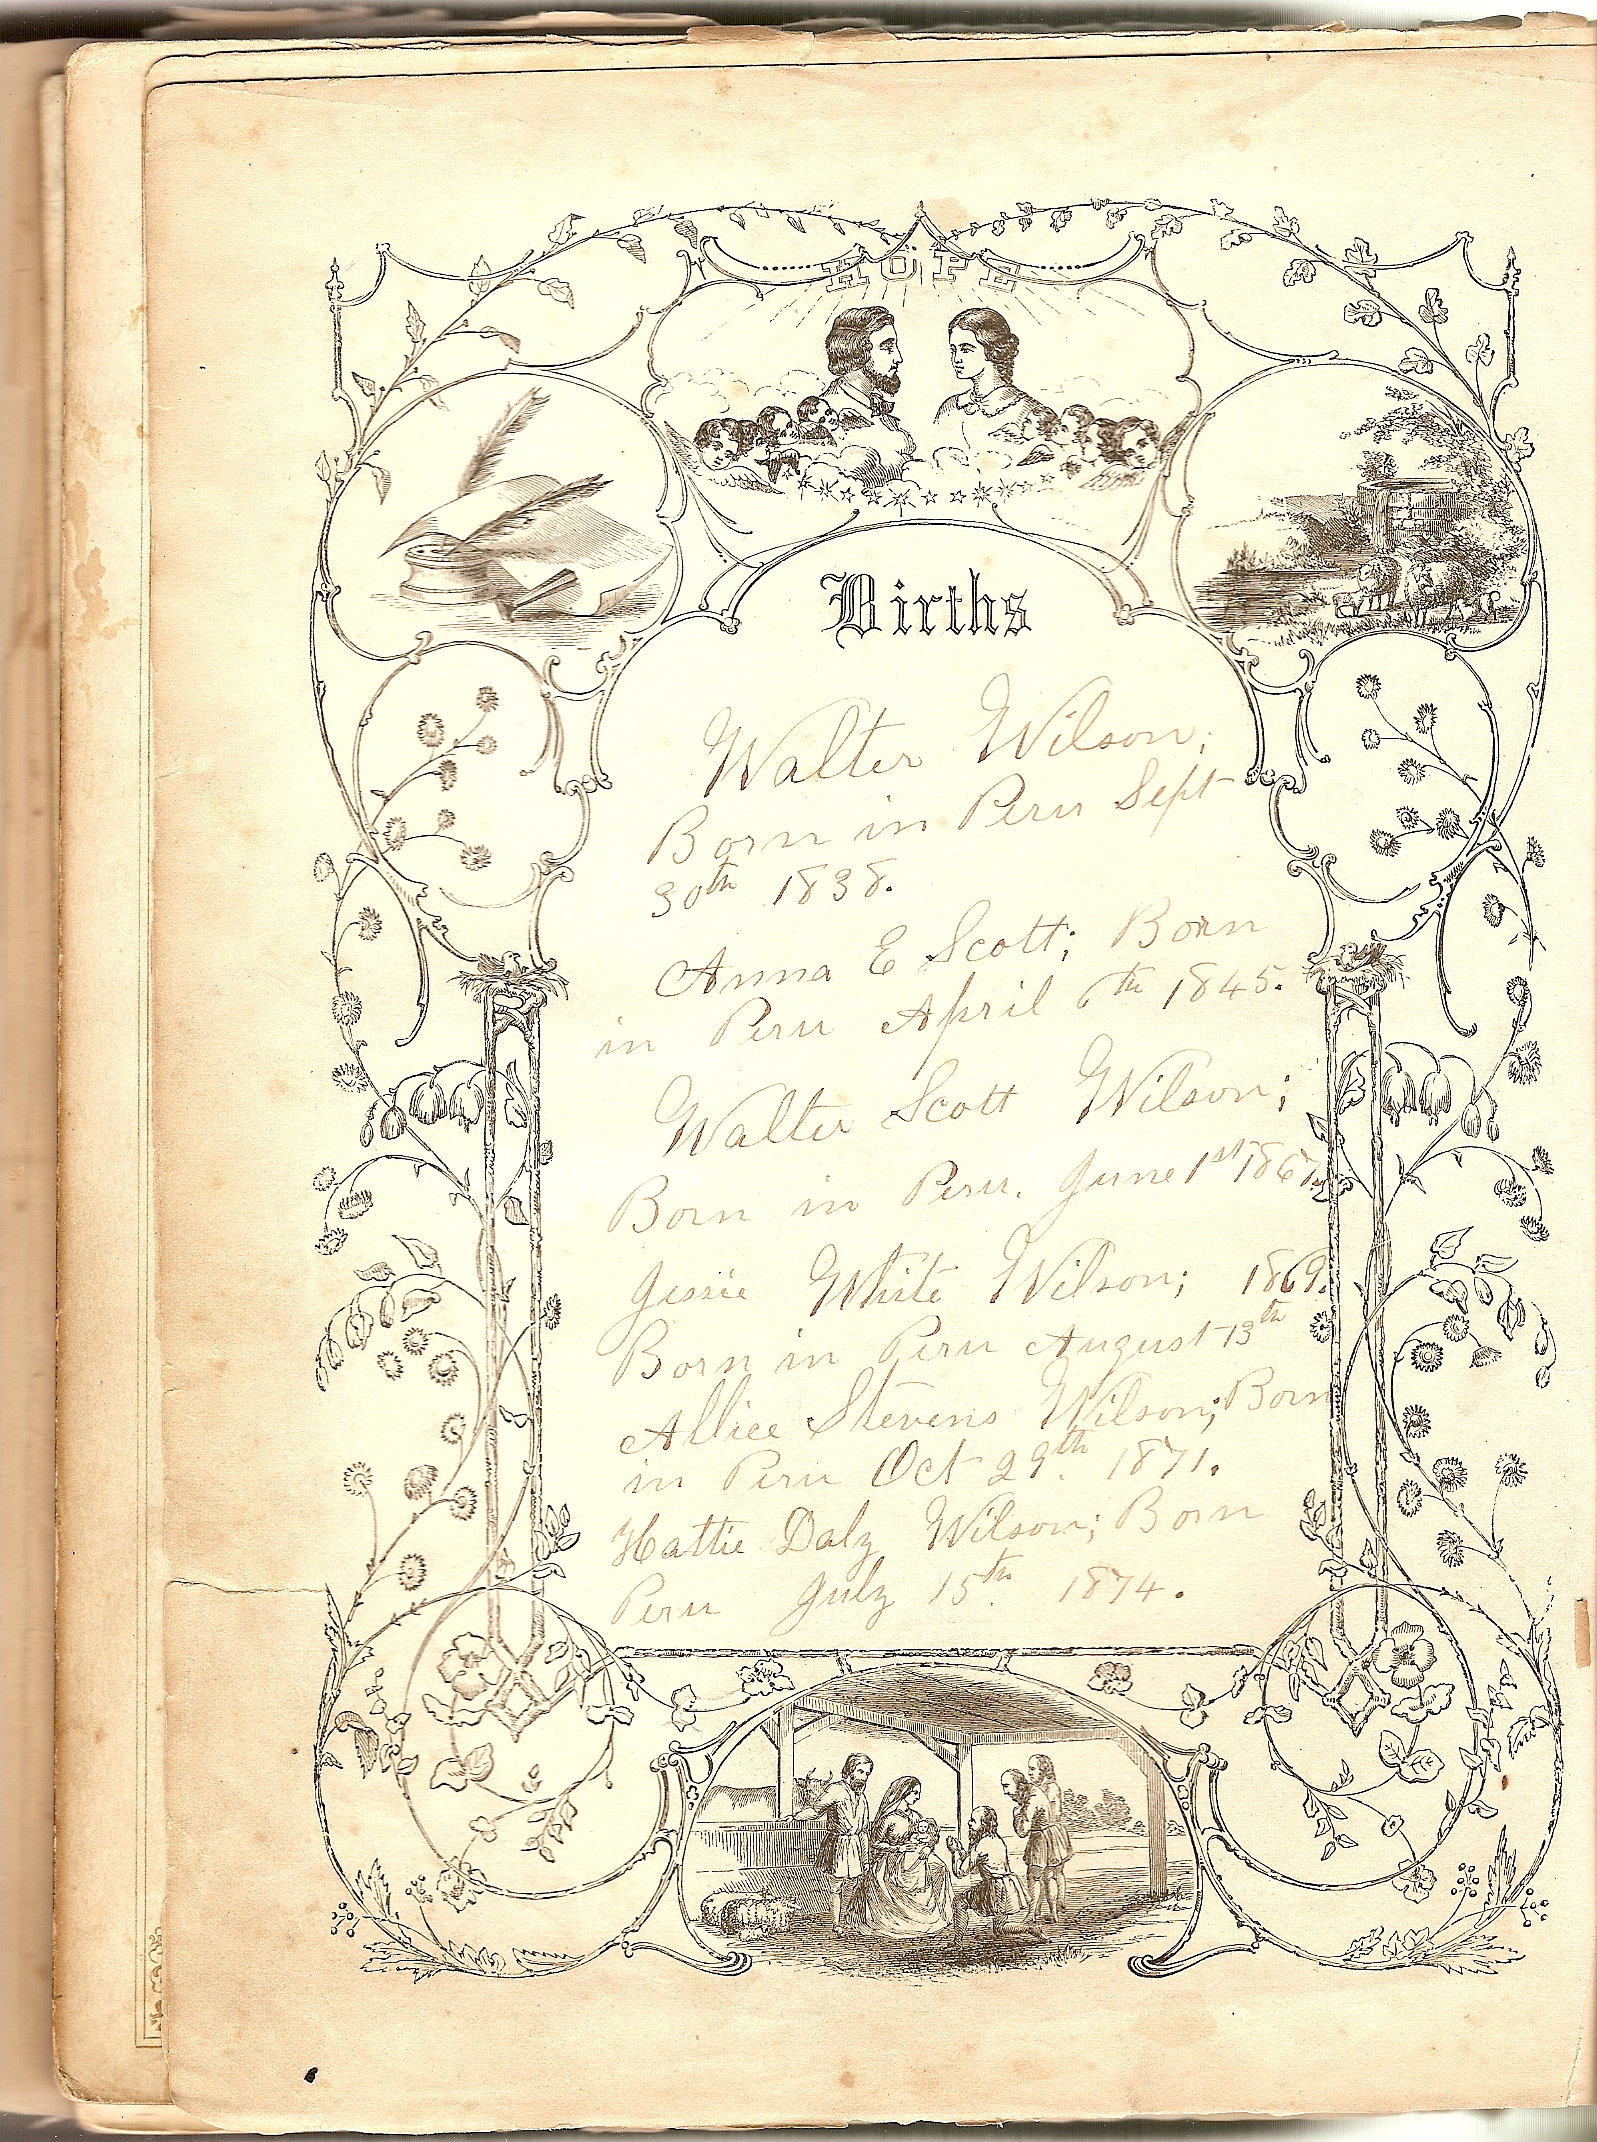 HOPE
Births
Walter Wilson;
Born in Peru Sept
30th 1838.
Anna E Scott; Born
in Peru April 6th 1845.
Walter Scott Wilson;
Born in Peru. June 1st 1867.
Jessie White Wilson; 1869.
Born in Peru August 13th
Allice Stevens Wilson; Born
in Peru Oct 29th. 1871.
Hattie Daly Wilson; Born
Peru July 15th. 1874.